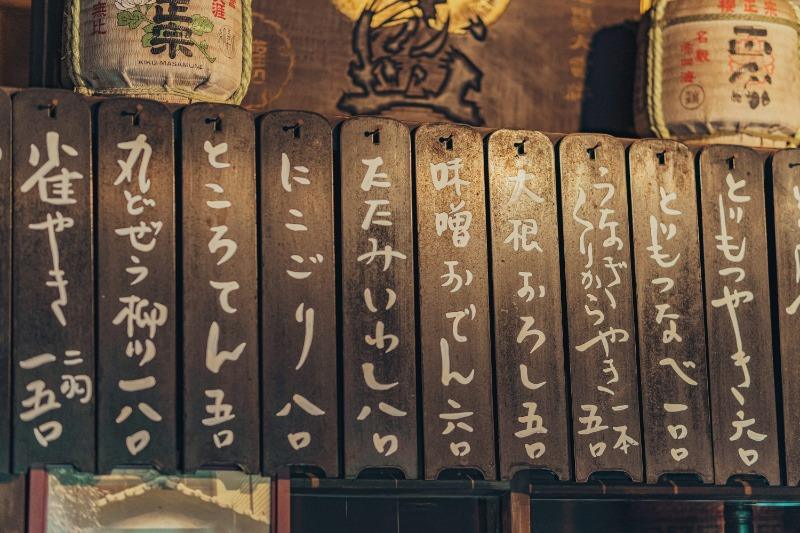 とりもつやき 六〇
とりもつなべ 一〇〇
うなぎ
くりからやき 一本 五〇
大根おろし 五〇
味噌おでん 六〇
たたみいわし 八〇
にこごり 八〇
ところてん 五〇
丸どぜう柳川 一八〇
雀やき 二羽 一五〇
正宗
KIKU-MASAMUNE